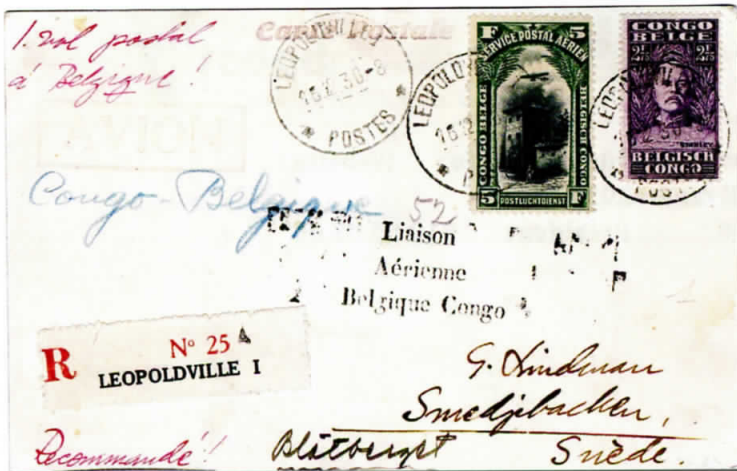 1. vol postal
à Belgique !
Carte Postale
LEOPOLDVILLE
POSTES
F SERVICE POSTAL AERIEN 5
CONGO BELGE
BELGISCH CONGO
5 POSTLUCHTDIENST F
CONGO
BELGE
BELGISCH
CONGO
Congo-Belgique
52
Liaison
Aérienne
Belgique Congo
R
N° 25
LEOPOLDVILLE I
G. Lindman
Smedjebacken,
Suède.
Recommandé !